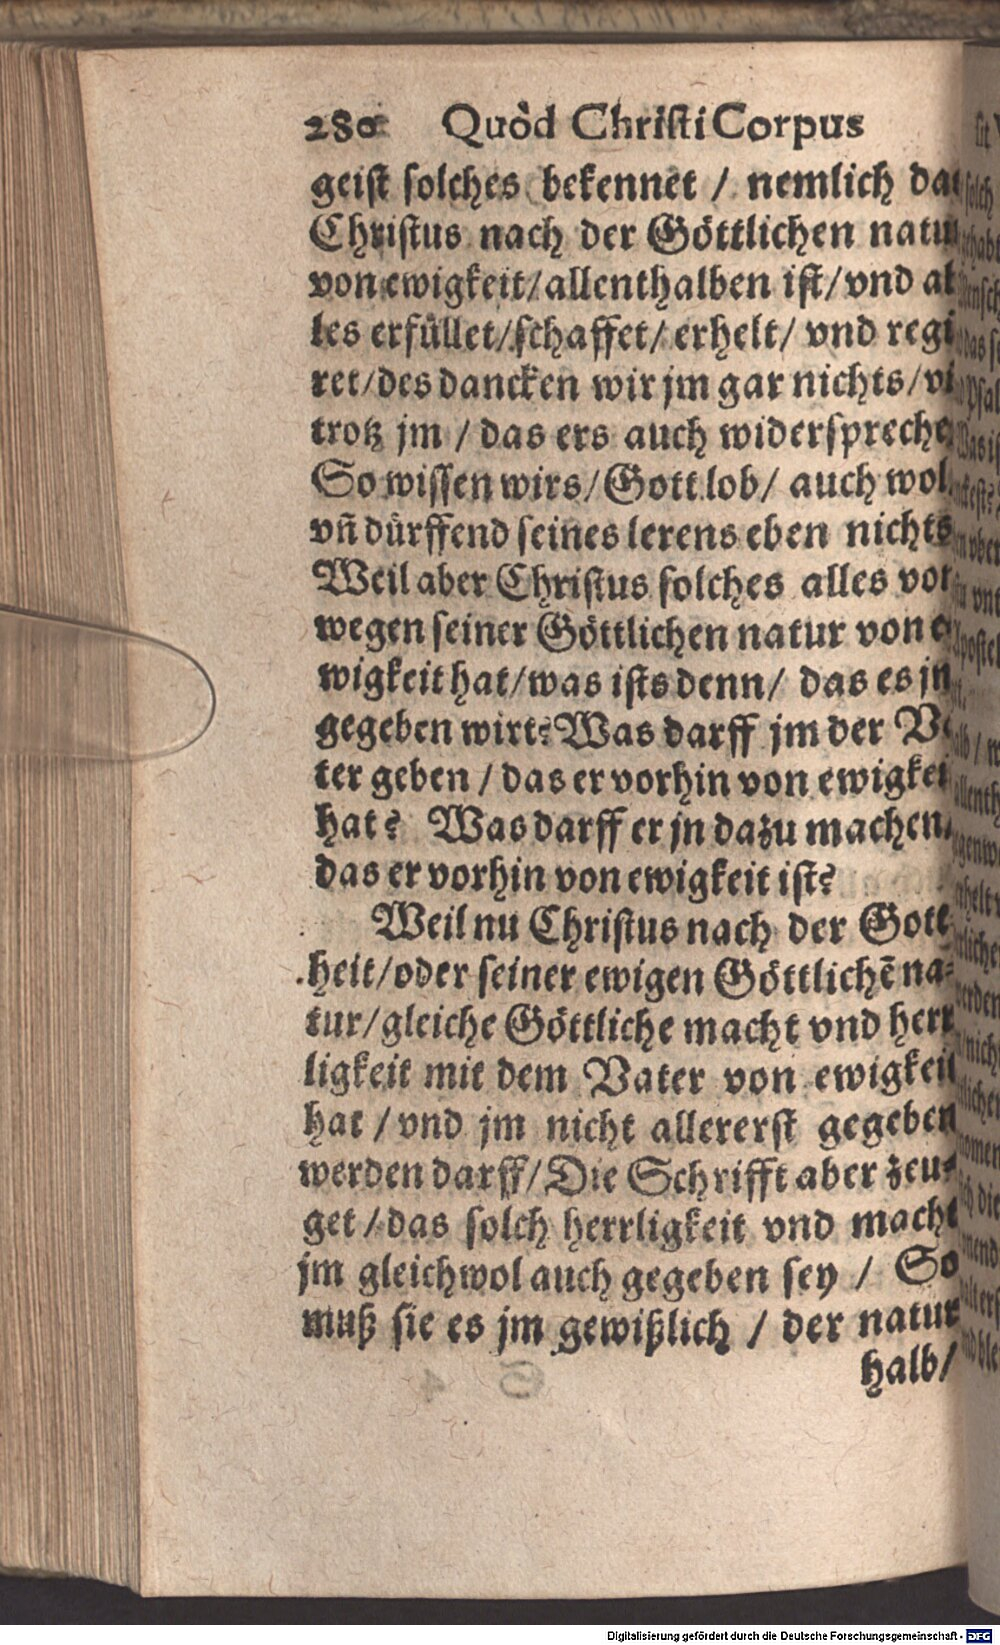 280 Quòd Christi Corpus
geist solches bekennet / nemlich
Christus nach der Göttlichen natu
von ewigkeit/allenthalben ist/vnd al
les erfüllet/schaffet/erhelt/ vnd regi
ret/des dancken wir jm gar nichts/
trotz jm / das ers auch widerspreche
So wissen wirs/Gott lob/ auch wol
vn̄ dürffend seines lerens eben nichts
Weil aber Christus solches alles vor
wegen seiner Göttlichen natur von e
wigkeit hat/was ists denn/ das es jn
gegeben wirt? Was darff jm der
ter geben / das er vorhin von ewigkei
hat? Was darff er jn dazu machen/
das er vorhin von ewigkeit ist?
Weil nu Christus nach der Gott
heit/oder seiner ewigen Göttlichē na⸗
tur/gleiche Göttliche macht vnd herr
ligkeit mit dem Vater von ewigkeit
hat / vnd jm nicht allererst gegeben
werden darff/Die Schrifft aber zeu⸗
get / das solch herrligkeit vnd macht
jm gleichwol auch gegeben sey / So
muß sie es jm gewißlich / der natur
halb/
Digitalisierung gefördert durch die Deutsche Forschungsgemeinschaft - DFG